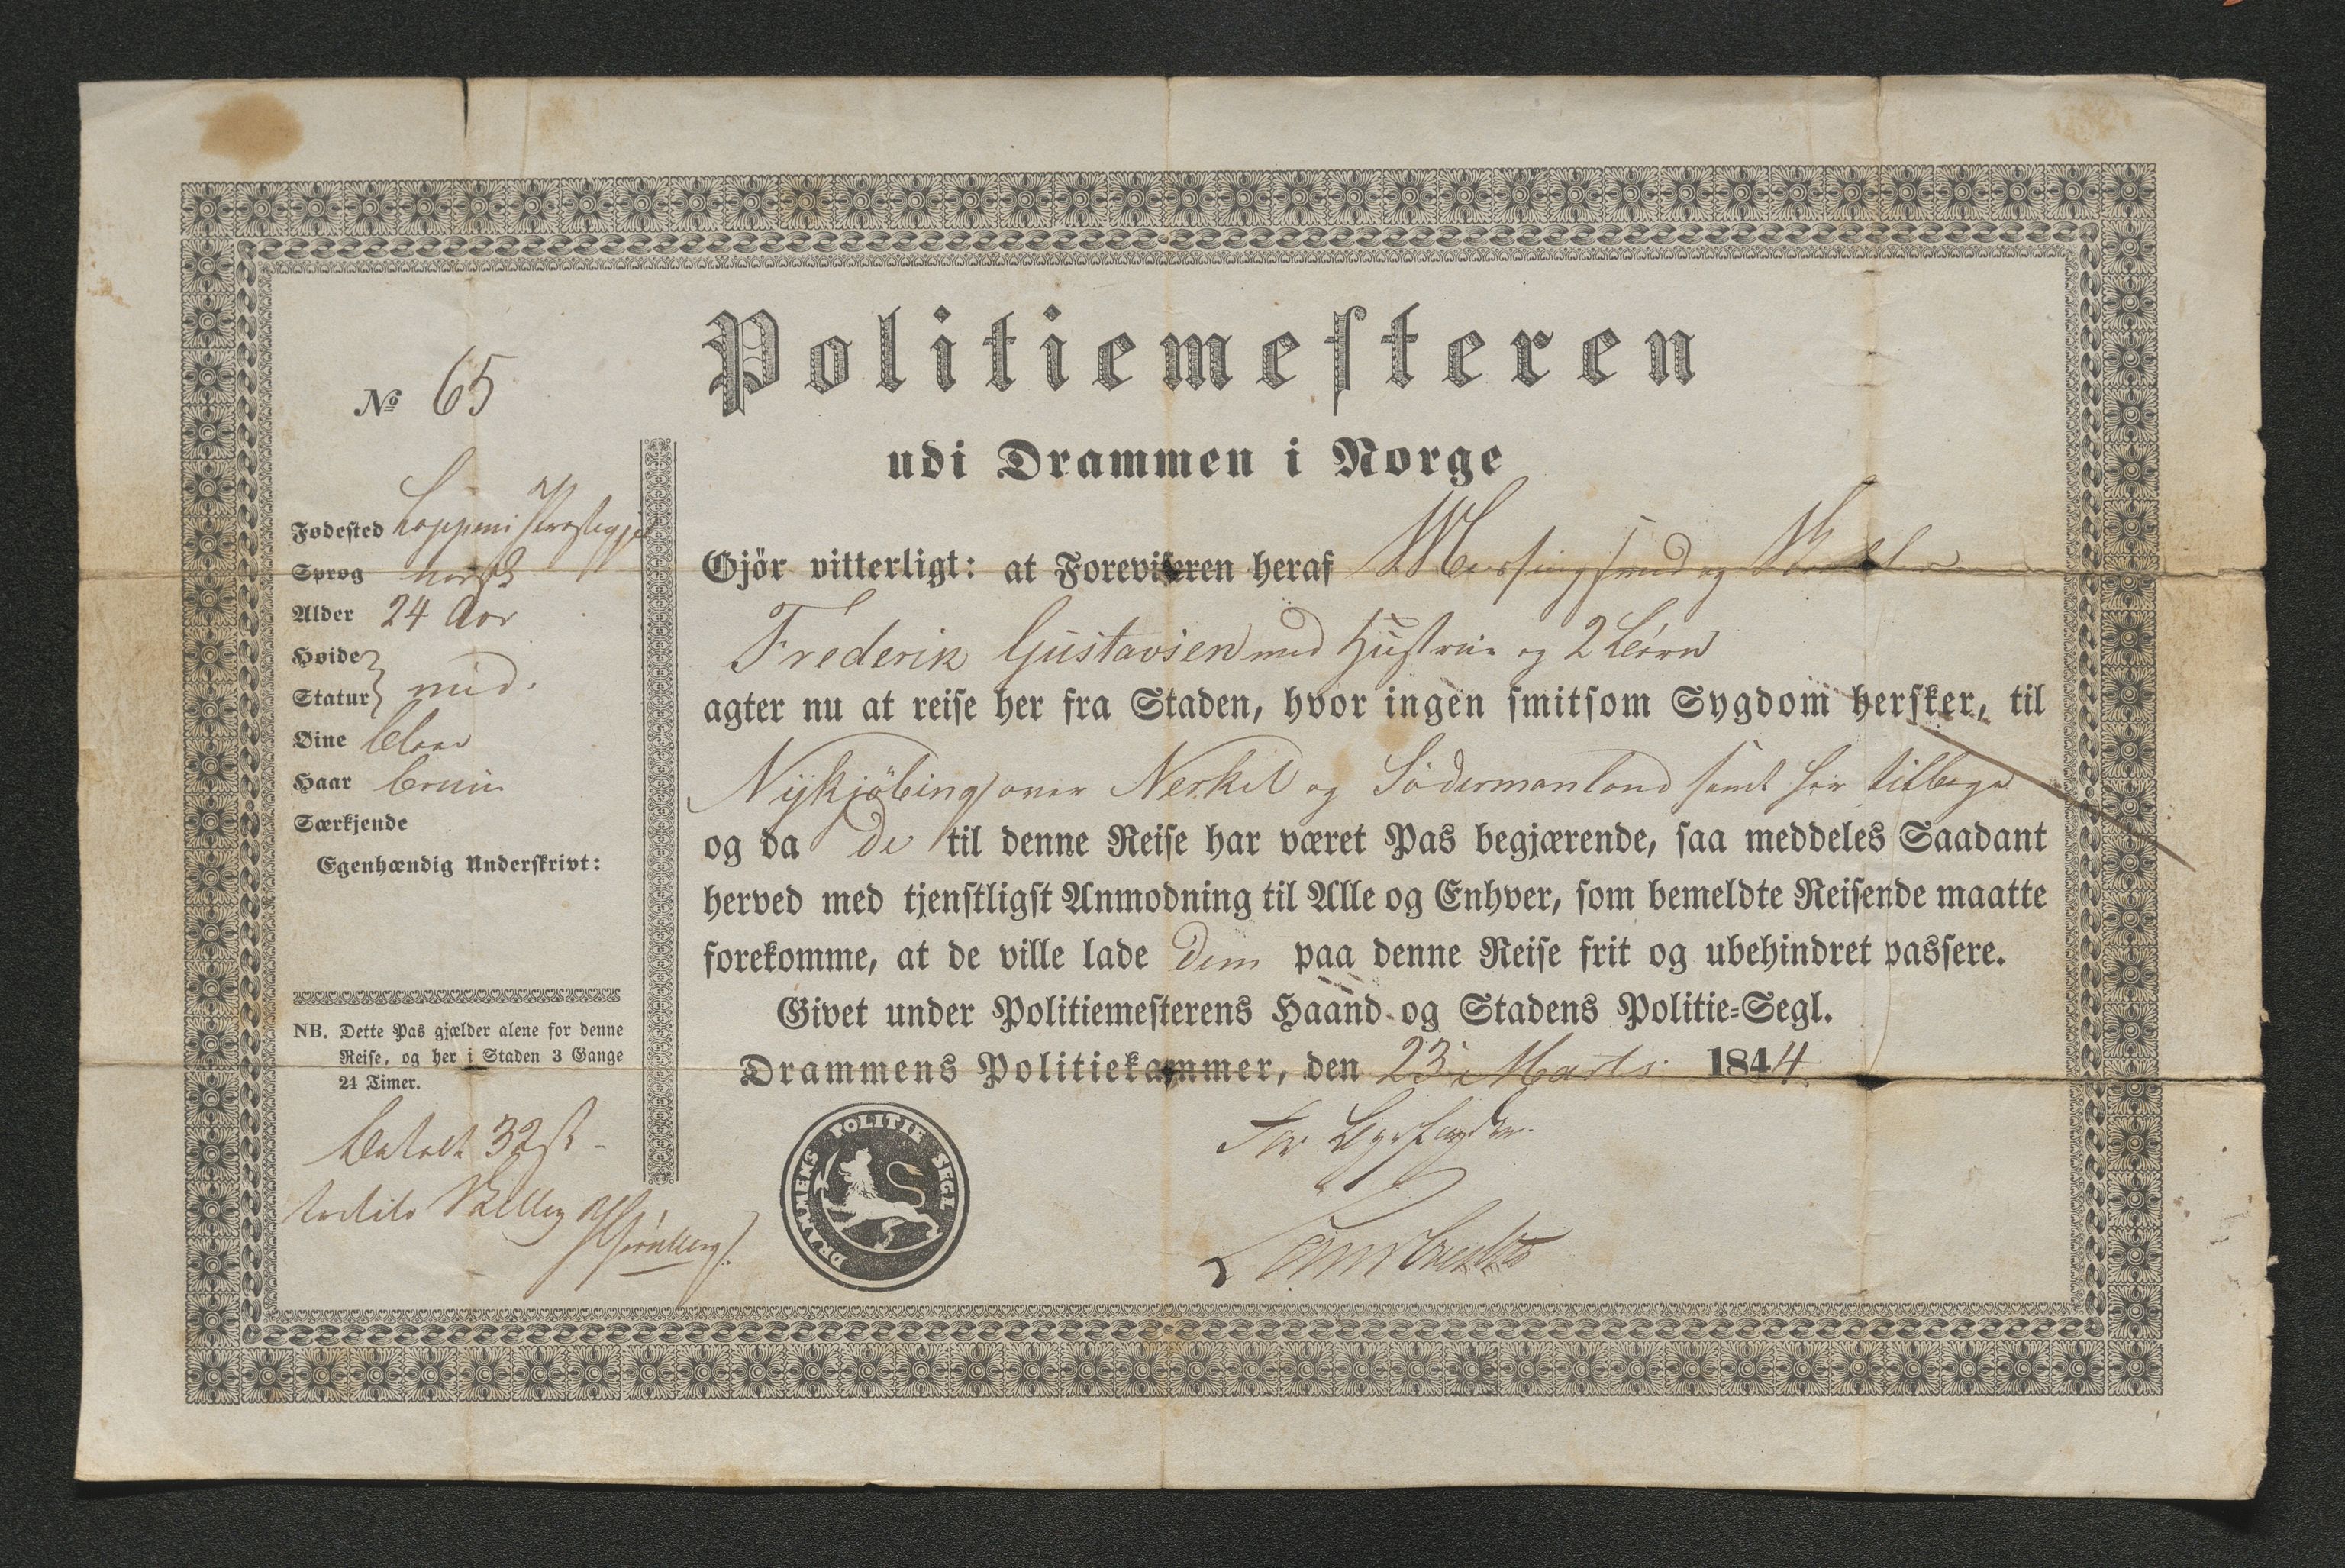 Politiemesteren
udi Drammen i Norge
No 65
Fødested Loppens Præstegjel
Sprog norsk
Alder 24 Aar
Høide
Statur } mid.
Øine blaae
Haar bruun
Særkjende
Egenhændig Underskrivt:
NB. Dette Pas gjælder alene for denne
Reise, og her i Staden 3 Gange
24 Timer.
betalt 32 sk
Gjör vitterligt: at Foreviseren heraf Messingsmed og
Frederik Gustavsen med Hustrue og 2 börn
agter nu at reise her fra Staden, hvor ingen smitsom Sygdom hersker, til
Nykjöbing over Nerkel og Södermanland samt her tilbage
og da de til denne Reise har været Pas begjærende, saa meddeles Saadant
herved med tjenstligst Anmodning til Alle og Enhver, som bemeldte Reisende maatte
forekomme, at de ville lade dem paa denne Reise frit og ubehindret passere.
Givet under Politiemesterens Haand og Stadens Politie-Segl.
Drammens Politiekammer, den 23 Marts 1844.
For Byefogden
DRAMMENS POLITIE SEGL